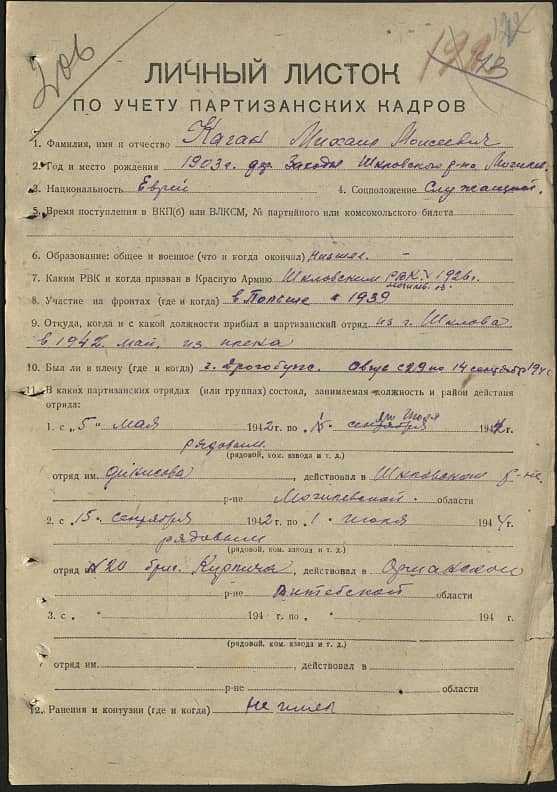 206
ЛИЧНЫЙ ЛИСТОК
ПО УЧЕТУ ПАРТИЗАНСКИХ КАДРОВ
1. Фамилия, имя и отчество Каган Михаил Моисеевич
2. Год и место рождения 1903 г. дер. Заходы Шкловского р-на Могилев.
3. Национальность Еврей 4. Соцположение Служащий.
5. Время поступления в ВКП(б) или ВЛКСМ, № партийного или комсомольского билета
6. Образование: общее и военное (что и когда окончил) низшее. –
7. Каким РВК и когда призван в Красную Армию Шкловским РВК 1926 г.
могилев. об.
8. Участие на фронтах (где и когда) в Польше в 1939
9. Откуда, когда и с какой должности прибыл в партизанский отряд из г. Шклова
в 1942 май, из плена
10. Был ли в плену (где и когда) г. Дрогобуж. Август с 29 по 14 сентябр 194
11. В каких партизанских отрядах (или группах) состоял, занимаемая должность и район действия
отряда:
1. с „5" мая 1942 г. по 15 сентября 194 г.
рядовым
(рядовой, ком. взвода и т. д.)
отряд им. Денисова, действовал в Шкловском р-не
р-не Могилевской области
2. с 15 сентября 1942 г. по 1 июля 1944 г.
рядовым
(рядовой, ком. взвода и т. д.)
отряд им. №20 бриг. Кирпича, действовал в Оршанском
р-не Витебской области
3. с „ " 194 г. по „ " 194 г.
(рядовой, ком. взвода и т. д.)
отряд им. , действовал в
р-не области
12. Ранения и контузии (где и когда) не имел